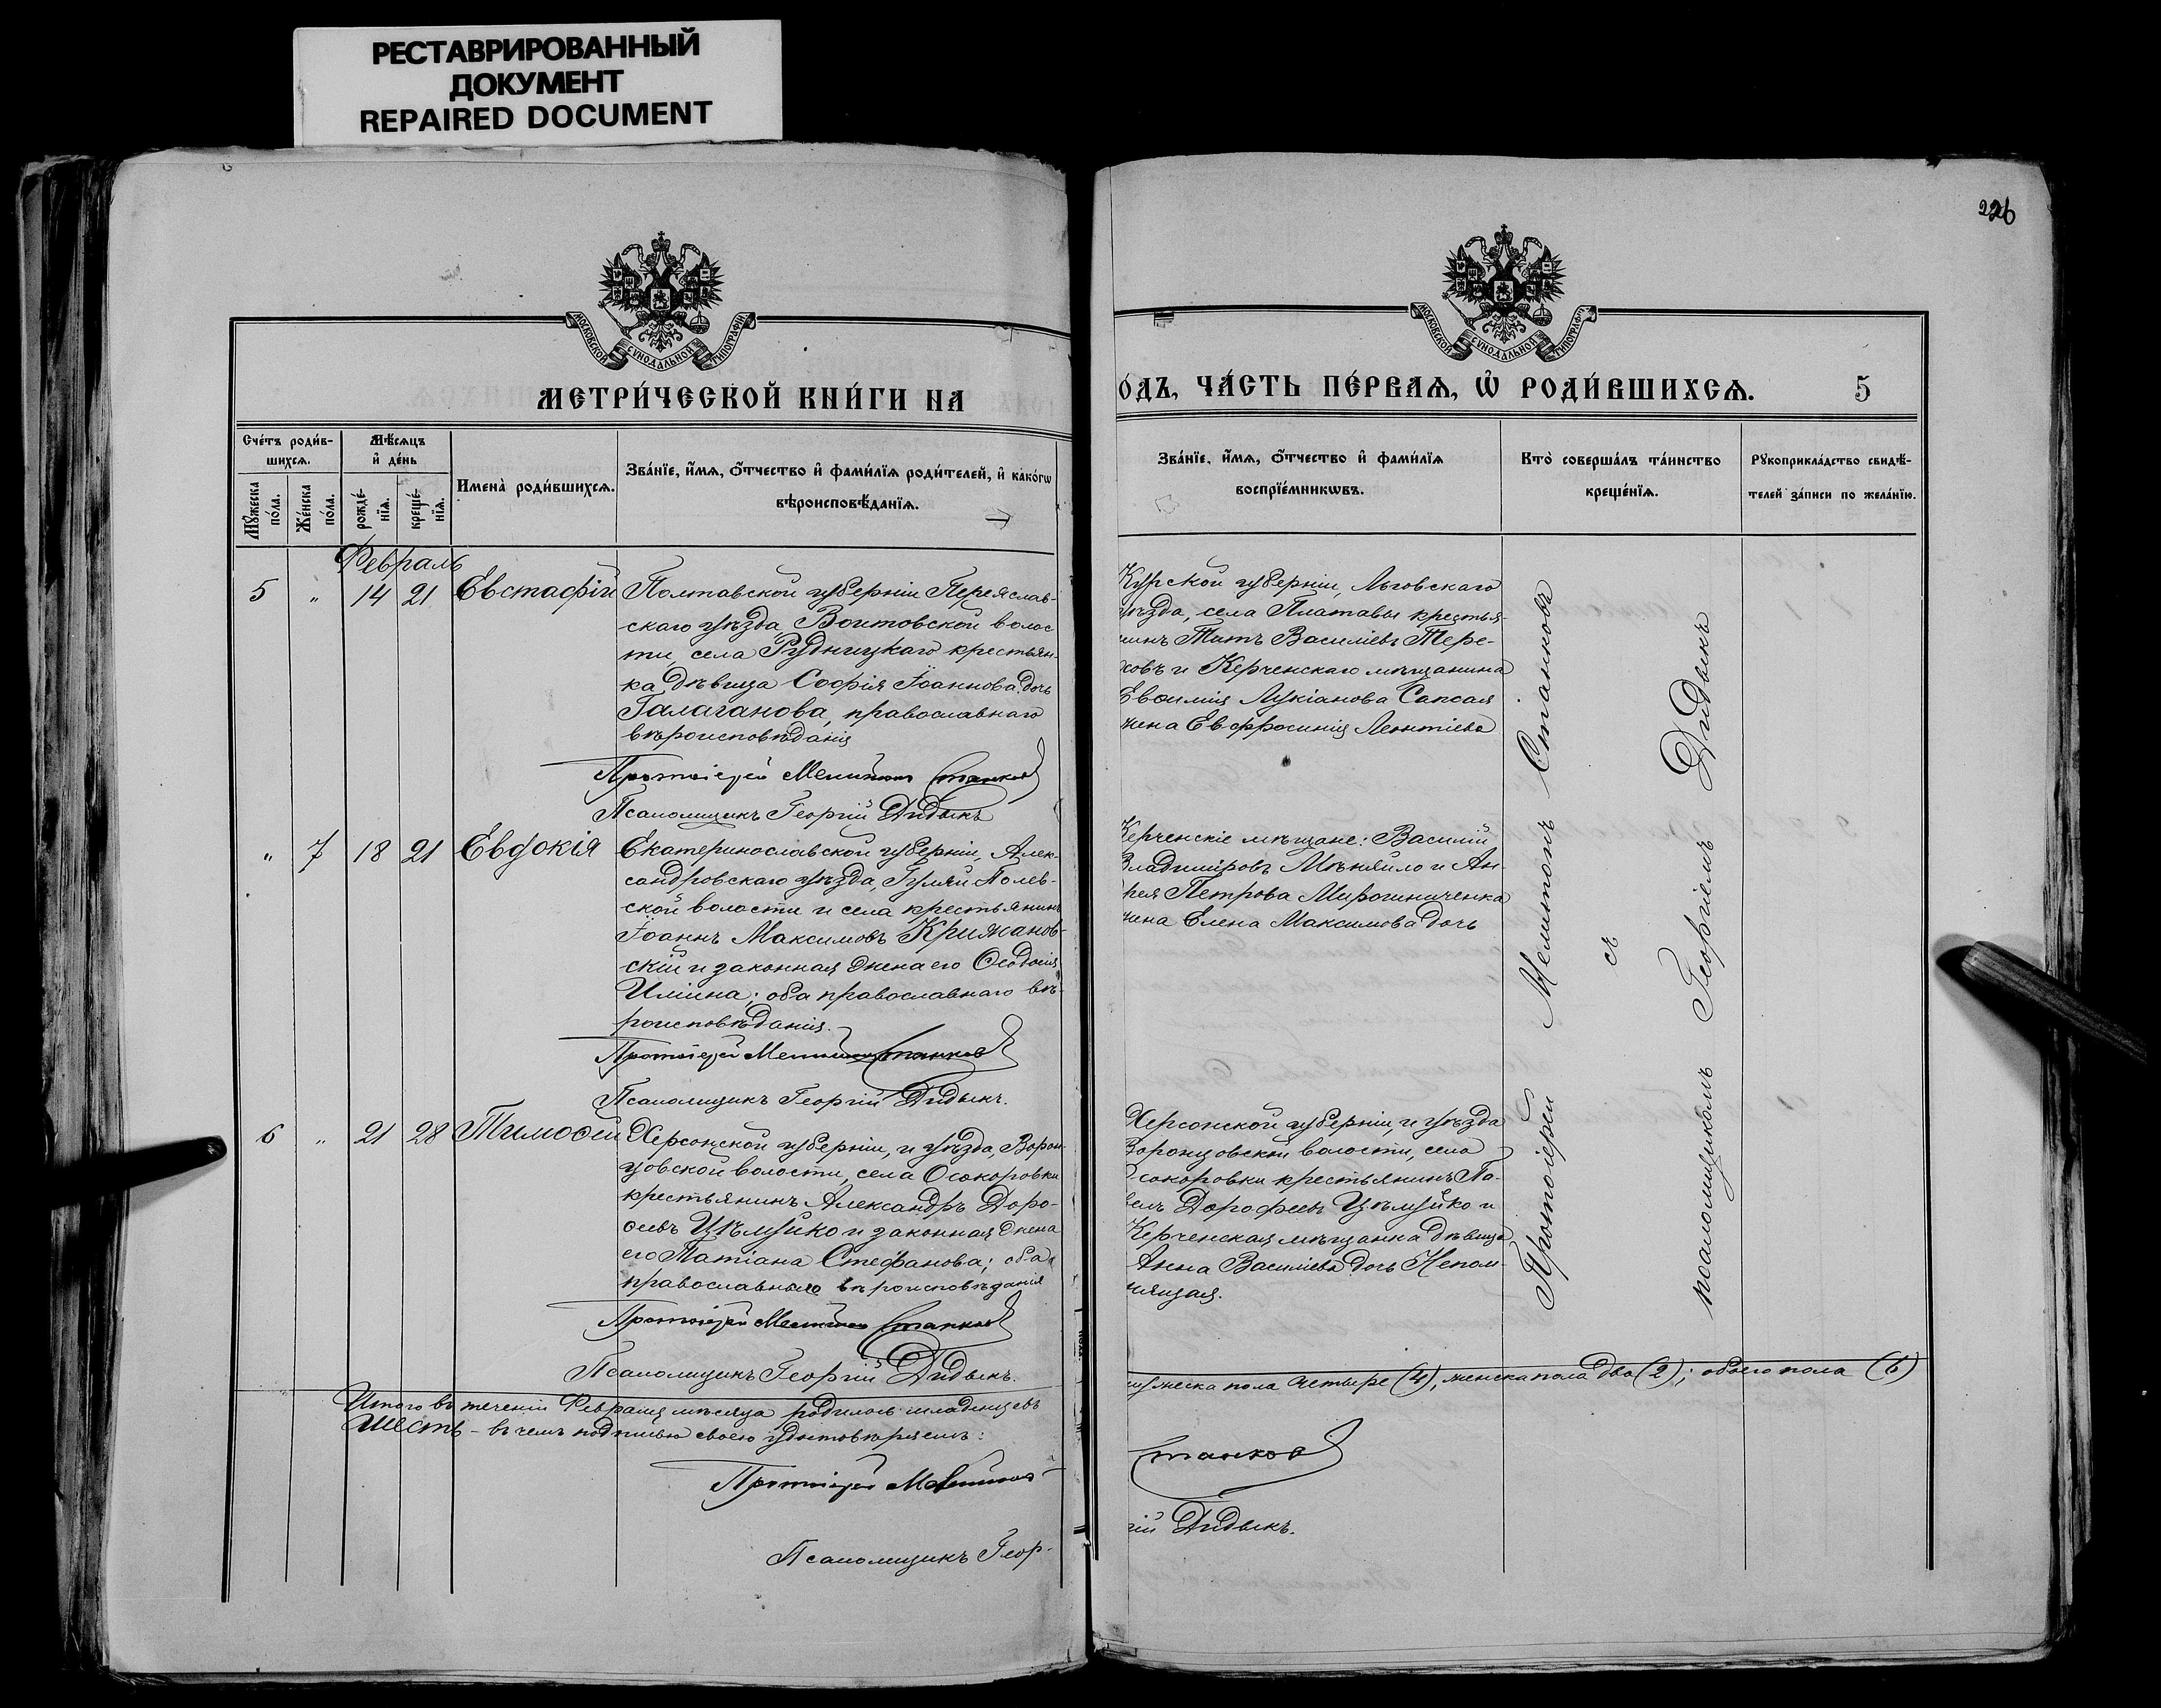 РЕСТАВРИРОВАННЫЙ
ДОКУМЕНТ
REPAIRED DOCUMENT
226
МОСКОВСКОЙ СѴНОДАЛЬНОЙ ТИПОГРАФІИ
МЕТРИ́ЧЕСКОЙ КНИ́ГИ НА
Сче́тъ роди́в-
шихсѧ.
Мѣ́сѧцъ
и҆ де́нь
Мꙋ́жеска по́ла.
Же́нска по́ла.
рожде́-
нїѧ.
креще́-
нїѧ.
Имена̀ роди́вшихсѧ.
Зва́нїе, и҆́мѧ, ѻ҆́тчество и҆ фами́лїѧ роди́телей, и҆ како́гѡ
вѣроисповѣ́данїѧ.
Февраль
5 „ 14 21 Евстафій Полтавской губерніи Переяслав-
скаго уѣзда Воитовской волос
ти, села Рудницкаго крестьян-
ка дѣвица Софія Іоаннова дочь
Галаганова, православнаго
вѣроисповѣданія
Протоіерей Мелитонъ Станковъ
Псаломщикъ Георгій Дидыкъ
„ 7 18 21 Евдокія Екатеринославской губерніи, Алек-
сандровскаго уѣзда, Гуляй Полев-
ской волости и села крестьянинъ
Іоаннъ Максимовъ Крижанов-
скій и законная жена его Ѳеодосія
Иліина; оба православнаго вѣ-
роисповѣданія.
Протоіерей Мелитонъ Станковъ
Псаломщикъ Георгій Дидыкъ.
6 „ 21 28 Тимоѳей Херсонской губерніи, и уѣзда, Ворон-
цовской волости, села Осокоровки
крестьянинъ Александръ Доро-
ѳеевъ Цѣлуйко и законная жена
его Татіана Стефанова; оба
православнаго вѣроисповѣданія
Протоіерей Мелитонъ Станковъ
Псаломщикъ Георгій Дидыкъ.
Итого въ теченіи Февраля мѣсяца родилось младенцевъ
шесть – въ чемъ подписью своею удостовѣряемъ:
Протоіерей Мелитонъ
Псаломщикъ Геор-
МОСКОВСКОЙ СѴНОДАЛЬНОЙ ТИПОГРАФІИ
О́ДЪ, ЧА́СТЬ ПЕ́РВАѦ, Ѡ҆ РОДИ́ВШИХСѦ.
5
Зва́нїе, и҆́мѧ, ѻ҆́тчество и҆ фами́лїѧ
воспрїе́мникѡвъ.
Кто̀ соверша́лъ та́инство
креще́нїѧ.
Рꙋкоприкла́дство свидѣ́-
телей за́писи по жела́нїю.
Курской губерніи, Льговскаго
уѣзда, села Платавы крестья-
нинъ Титъ Василіевъ Тере-
ховъ и Керченскаго мѣщанина
Евѳимія Лукіанова Сапсая
жена Евфросинія Леонтіева
Керченскіе мѣщане: Василій
Владиміровъ Мѣняйло и Ан-
дрея Петрова Мирошниченка
жена Елена Максимова дочь
Херсонской губерніи, и уѣзда
Воронцовской волости, села
Осокоровки крестьянинъ Па-
велъ Дорофеевъ Цѣлуйко и
Керченская мѣщанка дѣвица
Анна Василіева дочь Непом-
нящая.
Протоіерей Мелитонъ Станковъ
съ
псаломщикомъ Георгіемъ Дидыкъ
мужеска пола четыре (4), женска пола два (2); обоего пола (6)
Станковъ
гій Дидыкъ.